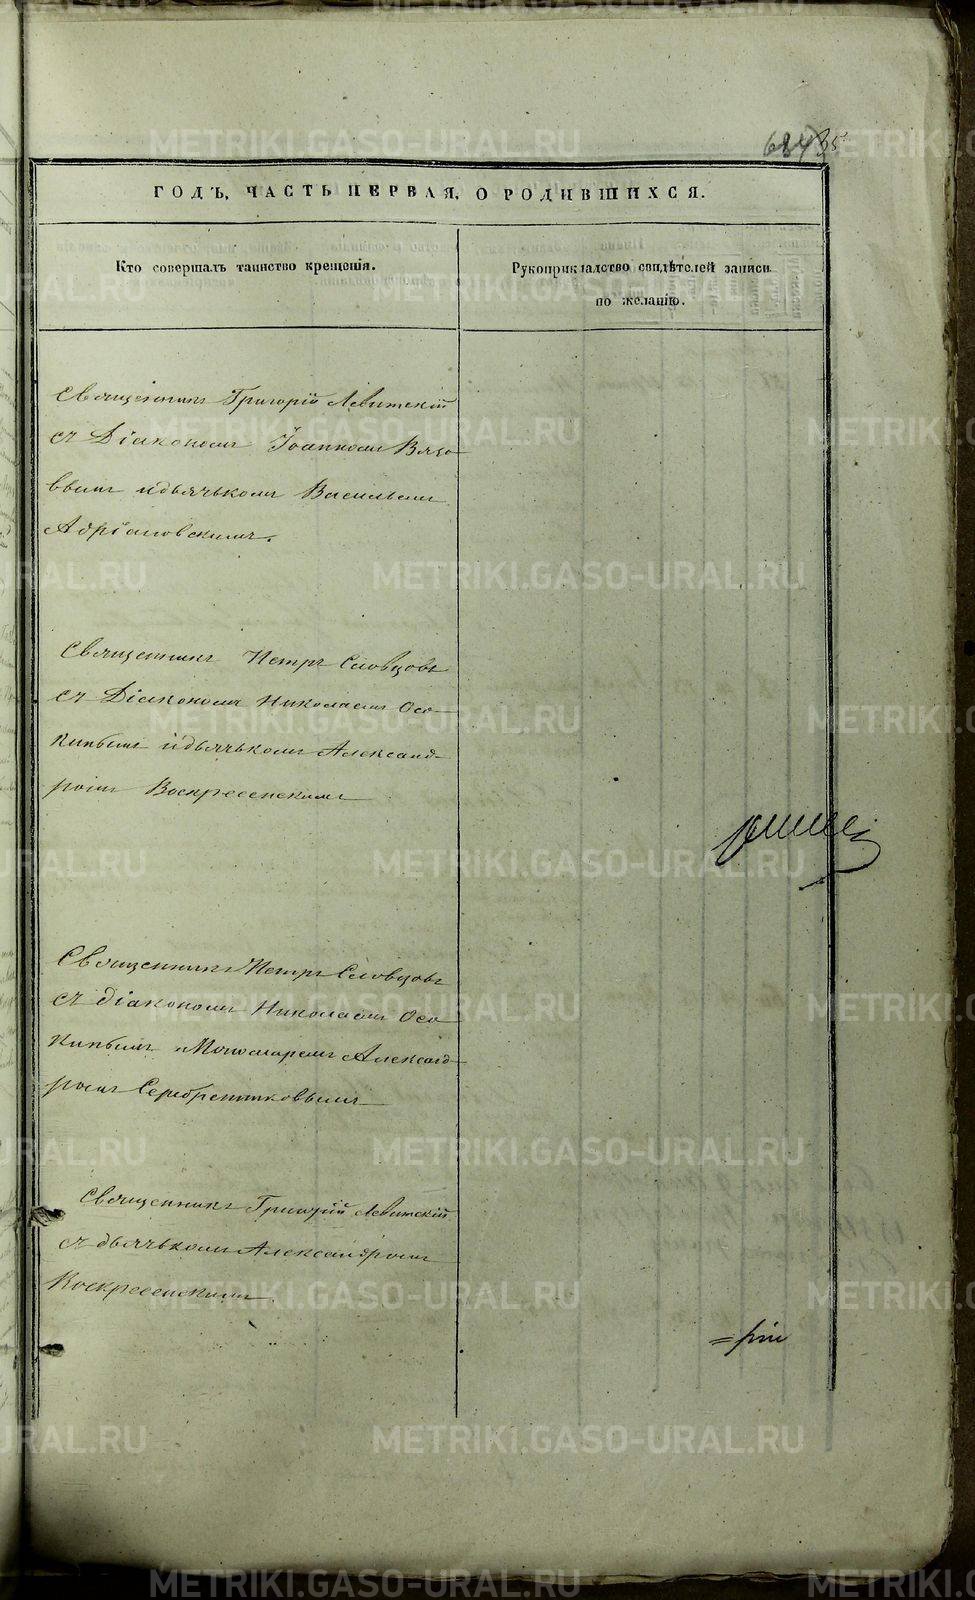 35
ГОДЪ, ЧАСТЬ ПЕРВАЯ, О РОДИВШИХСЯ.
Кто совершалъ таинство крещенія.
Рукоприкладство свидѣтелей записи
по желанію.
Священникъ Григорій Левитскій
съ Діакономъ Іоанномъ Вязо
ввымъ идьячькомъ Васильемъ
Адріановскимъ.
Священникъ Петръ Словцовъ
съ Діакономъ Николаемъ Осо-
кинымъ идьячькомъ Александ-
ромъ Воскресенскимъ
Священникъ Петръ Словцовъ
съ діакономъ Николаемъ Осо
кинымъ Александ-
ромъ Серебренниковымъ
Священникъ Григорій Левитскій
съ дьячькомъ Александромъ
Воскресенскимъ
METRIKI.GASO-URAL.RU